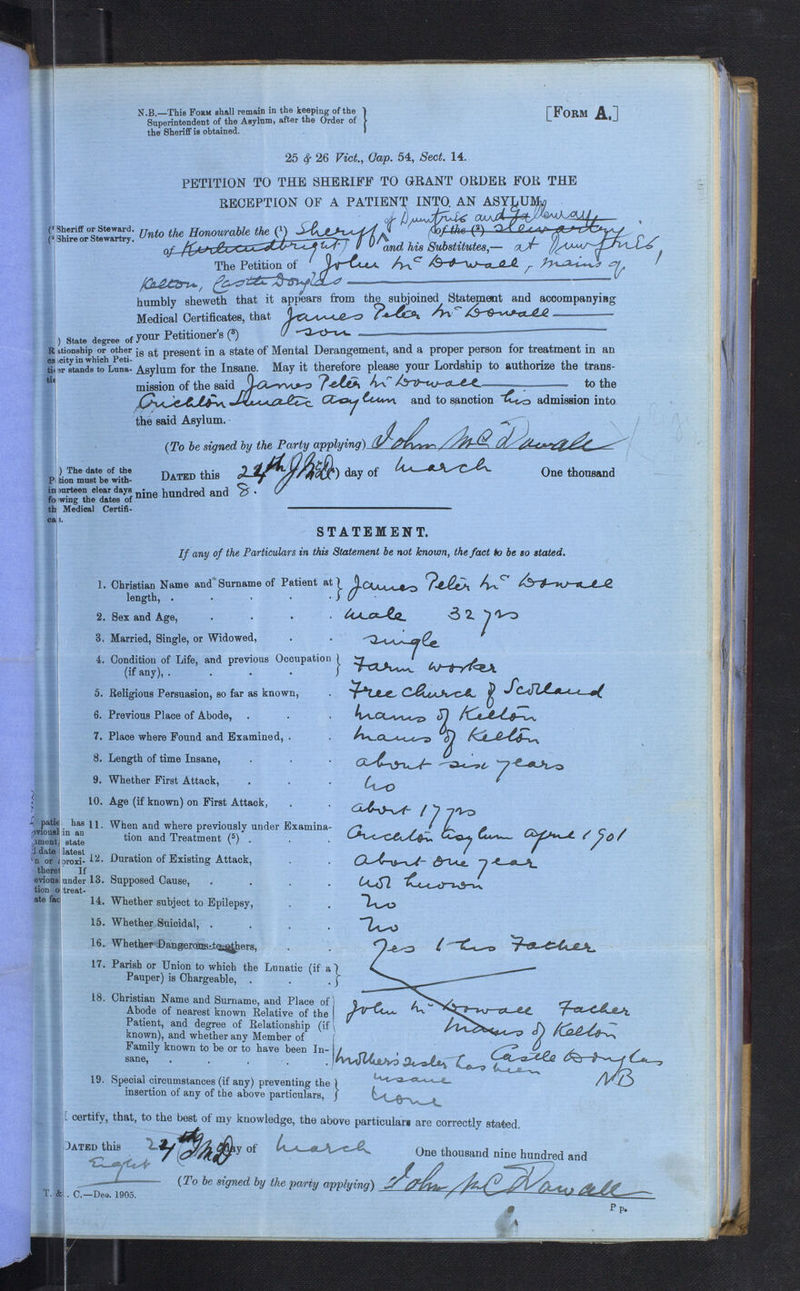 N.B.—This Form shall remain in the keeping of the
Superintendent of the Asylum, after the Order of
the Sheriff is obtained.
[Form A.]
25 & 26 Vict., Cap. 54, Sect. 14.
PETITION TO THE SHERIFF TO GRANT ORDER FOR THE
RECEPTION OF A PATIENT INTO AN ASYLUM.
of Dumfries and Galloway
(¹ Sheriff or Steward.
(² Shire or Stewartry.
Unto the Honourable the (¹) Sheriff of the (²) Stewartry
of Kirkcudbright and his Substitutes,— at Dumfries,
The Petition of John Mc Dowall, Mains of
Kelton, Castle Douglas
humbly sheweth that it appears from the subjoined Statement and accompanying
Medical Certificates, that James Peter Mc Dowall
) State degree of
Relationship or other
capacity in which Peti-
tioner stands to Luna-
tic
your Petitioner's (³) son
is at present in a state of Mental Derangement, and a proper person for treatment in an
Asylum for the Insane. May it therefore please your Lordship to authorize the trans-
mission of the said James Peter Mc Dowall to the
Crichton Lunatic Asylum and to sanction his admission into
the said Asylum.
(To be signed by the Party applying) John McDowall
) The date of the
Petition must be with-
in fourteen clear days
following the dates of
the Medical Certifi-
cates.
Dated this 24th J McD day of March One thousand
nine hundred and 8.
STATEMENT.
If any of the Particulars in this Statement be not known, the fact to be so stated.
1. Christian Name and Surname of Patient at
length, . James Peter Mc Dowall
2. Sex and Age, male 32 yrs
3. Married, Single, or Widowed, single
4. Condition of Life, and previous Occupation
(if any), . Farm worker
5. Religious Persuasion, so far as known, Free Church of Scotland
6. Previous Place of Abode, . Mains of Kelton
7. Place where Found and Examined, . Mains of Kelton
8. Length of time Insane, about six years
9. Whether First Attack, no
10. Age (if known) on First Attack, about 17 yrs
11. When and where previously under Examina-
tion and Treatment (⁵) . Crichton Asylum April 1901
12. Duration of Existing Attack, about one year
13. Supposed Cause, not known
14. Whether subject to Epilepsy, No
15. Whether Suicidal, . No
16. Whether Dangerous to others, Yes to his Father
17. Parish or Union to which the Lunatic (if a
Pauper) is Chargeable, .
18. Christian Name and Surname, and Place of
Abode of nearest known Relative of the
Patient, and degree of Relationship (if
known), and whether any Member of
Family known to be or to have been In-
sane, .
John Mc Dowall Father
Mains of Kelton
Castle Douglas
NB
Mother's sister has been
insane
19. Special circumstances (if any) preventing the
insertion of any of the above particulars, none
I certify, that, to the best of my knowledge, the above particulars are correctly stated.
Dated this 24th J McD day of March One thousand nine hundred and
Eight
(To be signed by the party applying) John McDowall
T. & . C.—Dec. 1905.
P p.